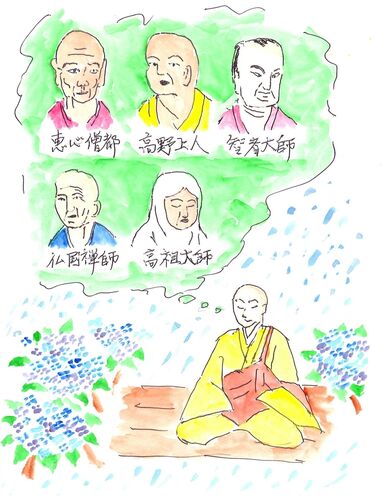 恵心僧都
高野上人
智者大師
仏国禅師
高祖大師